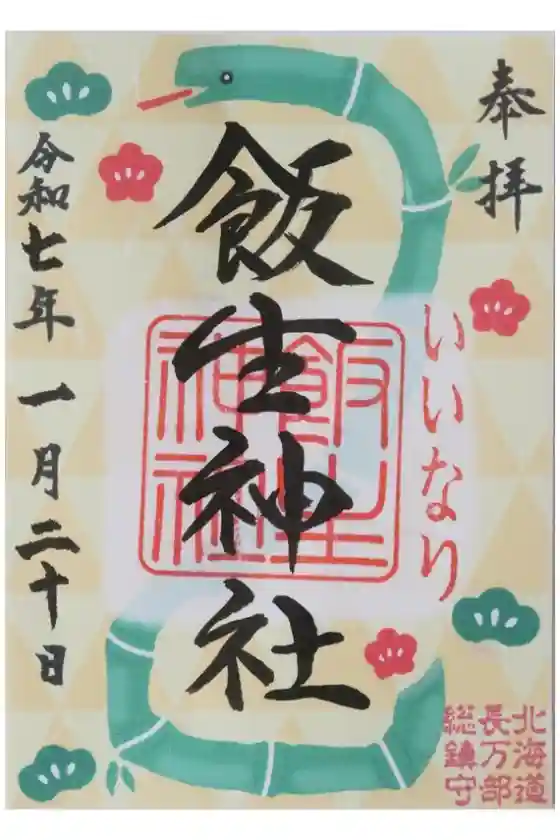 奉拝
いいなり
飯生神社
飯生
神社
令和七年一月二十日
北海道
長万部
総鎮守